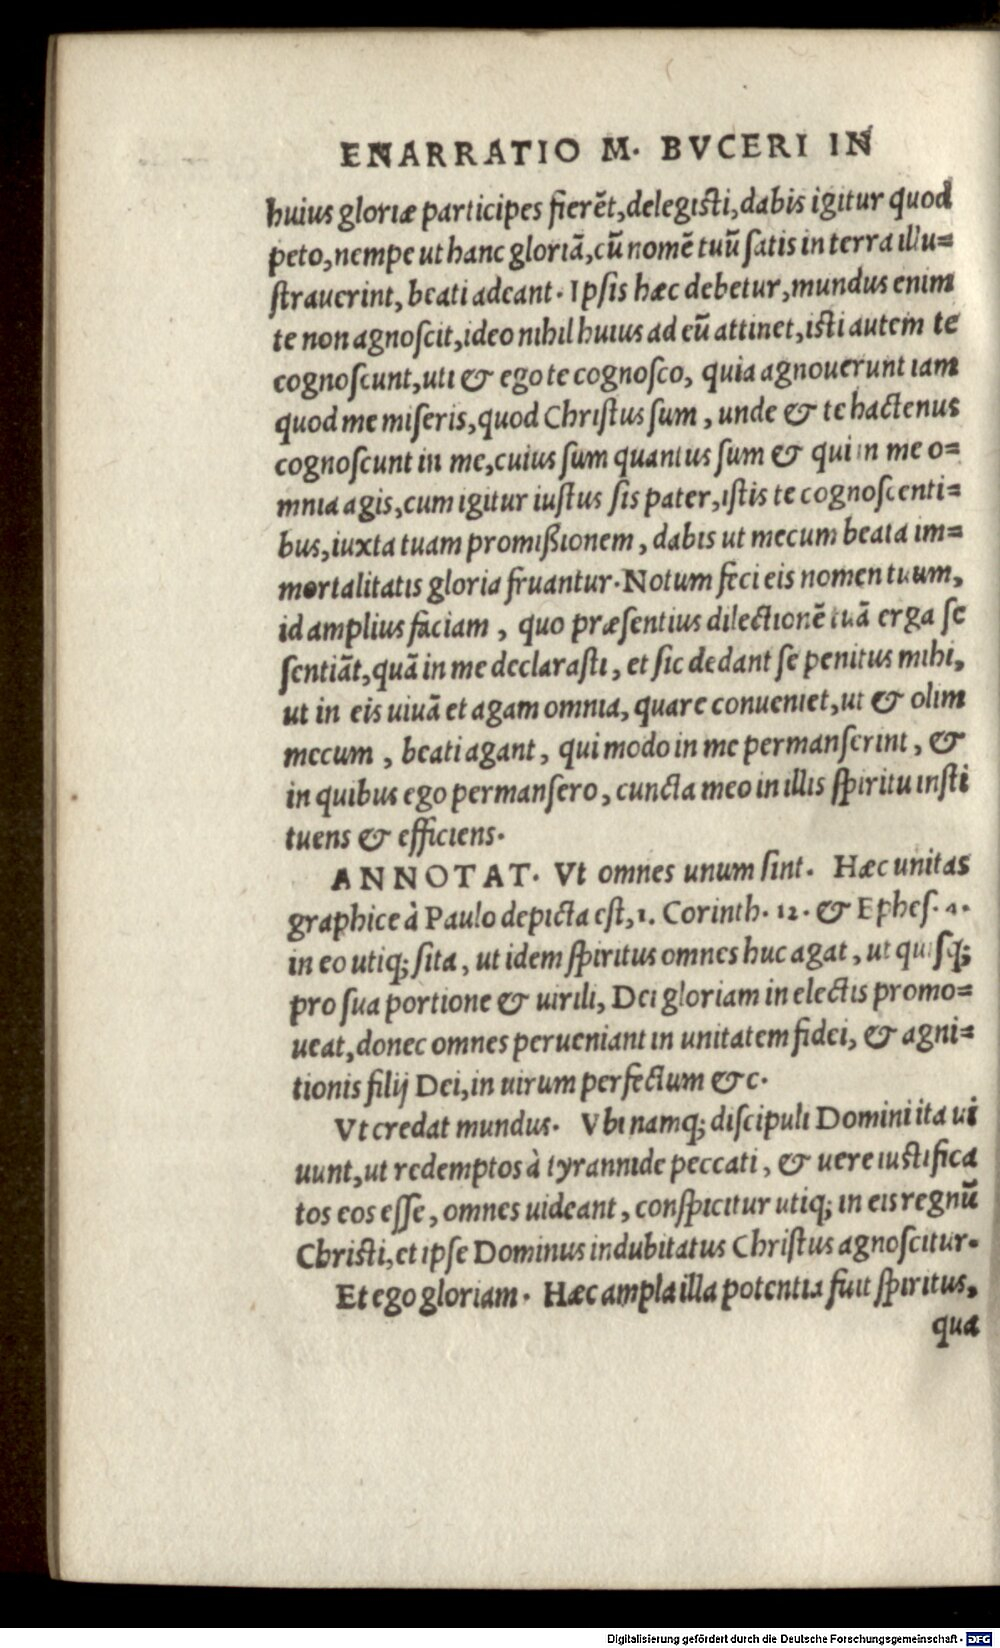 ENARRATIO M. BVCERI IN
huius gloriæ participes fierẽt, delegisti, dabis igitur quod
peto, nempe ut hanc gloriã, cũ nomẽ tuũ ſatis in terra illu=
ſtrauerint, beati adeant. Ipſis hæc debetur, mundus enim
te non agnoſcit, ideo nihil huius ad eũ attinet, isti autem te
cognoſcunt, uti & ego te cognoſco, quia agnouerunt iam
quod me miſeris, quod Chriſtus ſum, unde & te hactenus
cognoſcunt in me, cuius ſum quantus ſum & qui in me o=
mnia agis, cum igitur iuſtus ſis pater, iſtis te cognoſcenti=
bus, iuxta tuam promißionem, dabis ut mecum beata im=
mortalitatis gloria fruantur. Notum feci eis nomen tuum,
id amplius faciam, quo præſentius dilectionẽ tuã erga ſe
ſentiãt, quã in me declaraſti, et ſic dedant ſe penitus mihi,
ut in eis uiuã et agam omnia, quare conueniet, ut & olim
mecum, beati agant, qui modo in me permanſerint, &
in quibus ego permanſero, cuncta meo in illis ſpiritu inſti
tuens & efficiens.
ANNOTAT. Vt omnes unum ſint. Hæc unitas
graphice à Paulo depicta eſt, 1. Corinth. 12. & Epheſ. 4.
in eo utiq; ſita, ut idem ſpiritus omnes huc agat, ut quiſq;
pro ſua portione & uirili, Dei gloriam in electis promo=
ueat, donec omnes perueniant in unitatem fidei, & agni=
tionis filij Dei, in uirum perfectum &c.
Vt credat mundus. Vbi namq; diſcipuli Domini ita ui
uunt, ut redemptos à tyrannide peccati, & uere iustifica
tos eos eſſe, omnes uideant, conſpicitur utiq; in eis regnũ
Christi, et ipſe Dominus indubitatus Chriſtus agnoſcitur.
Et ego gloriam. Hæc ampla illa potentia fuit ſpiritus,
qua
Digitalisierung gefördert durch die Deutsche Forschungsgemeinschaft - DFG